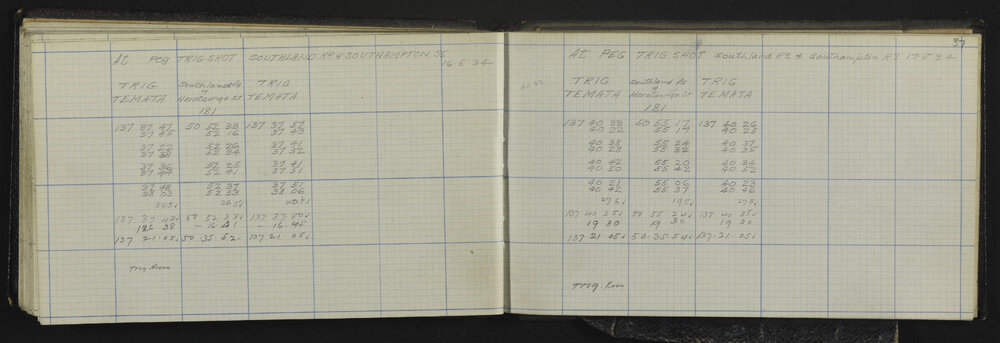 At Peg TRIG SHOT SOUTHLAND Rd & SOUTHAMPTON St
16.5.34
TRIG Southland Rd TRIG
TEMATA & Heretaunga St TEMATA
181
137 37 47 50 52 33 137 37 57
37 45 52 16 37 43
37 22 52 26 37 41
37 38 52 34 37 52
37 36 52 25 37 41
37 44 52 41 37 51
37 48 52 37 37 51
38 03 52 53 38 06
343 265
137.37.42 50.52.33 137.37.50
16 38 - 16.41 - 16.45
137.21.05 50.35.52 137.21.05
Trig. Room
37
At PEG TRIG SHOT Southland Rd & Southampton Rd 17.5.34
TRIG Southland Rd TRIG
TEMATA & Heretaunga St TEMATA
181
137 40 38 50 55 17 137 40 26
40 22 55 17 40 25
40 38 55 24 40 37
40 28 55 32 40 35
40 42 55 20 40 34
40 50 55 42 40 52
40 21 55 06 40 23
40 42 55 37 40 46
276 195 278
137.40.35 50 55 24 137 40.35
19 30 19 30 19.30
137.21.05 50.35.54 137.21.05
Trig. Room